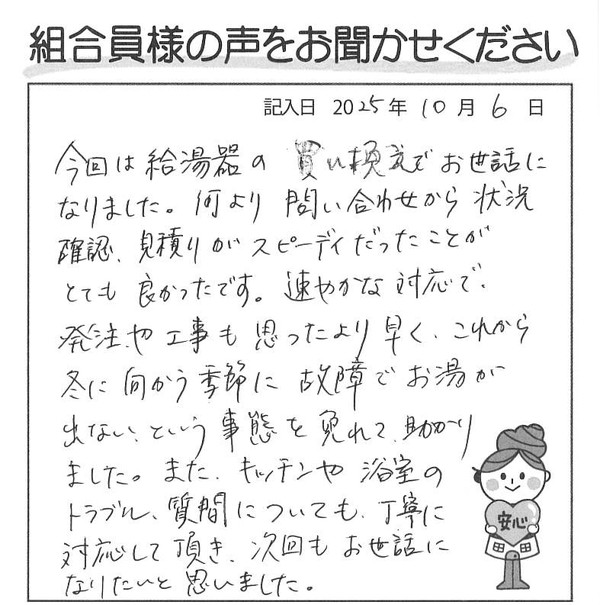 組合員様の声をお聞かせください
記入日 2025年 10月 6日
今回は給湯器の 買い換えでお世話に
なりました。何より 問い合わせから 状況
確認、見積りがスピーディだったことが
とても 良かったです。速やかな 対応で、
発注や工事も 思ったより 早く、これから
冬に 向かう季節に 故障でお湯が
出ない、という 事態を 免れて、助かり
ました。また、キッチンや 浴室の
トラブル、質問についても、丁寧に
対応して頂き、次回もお世話に
なりたいと 思いました。
安心